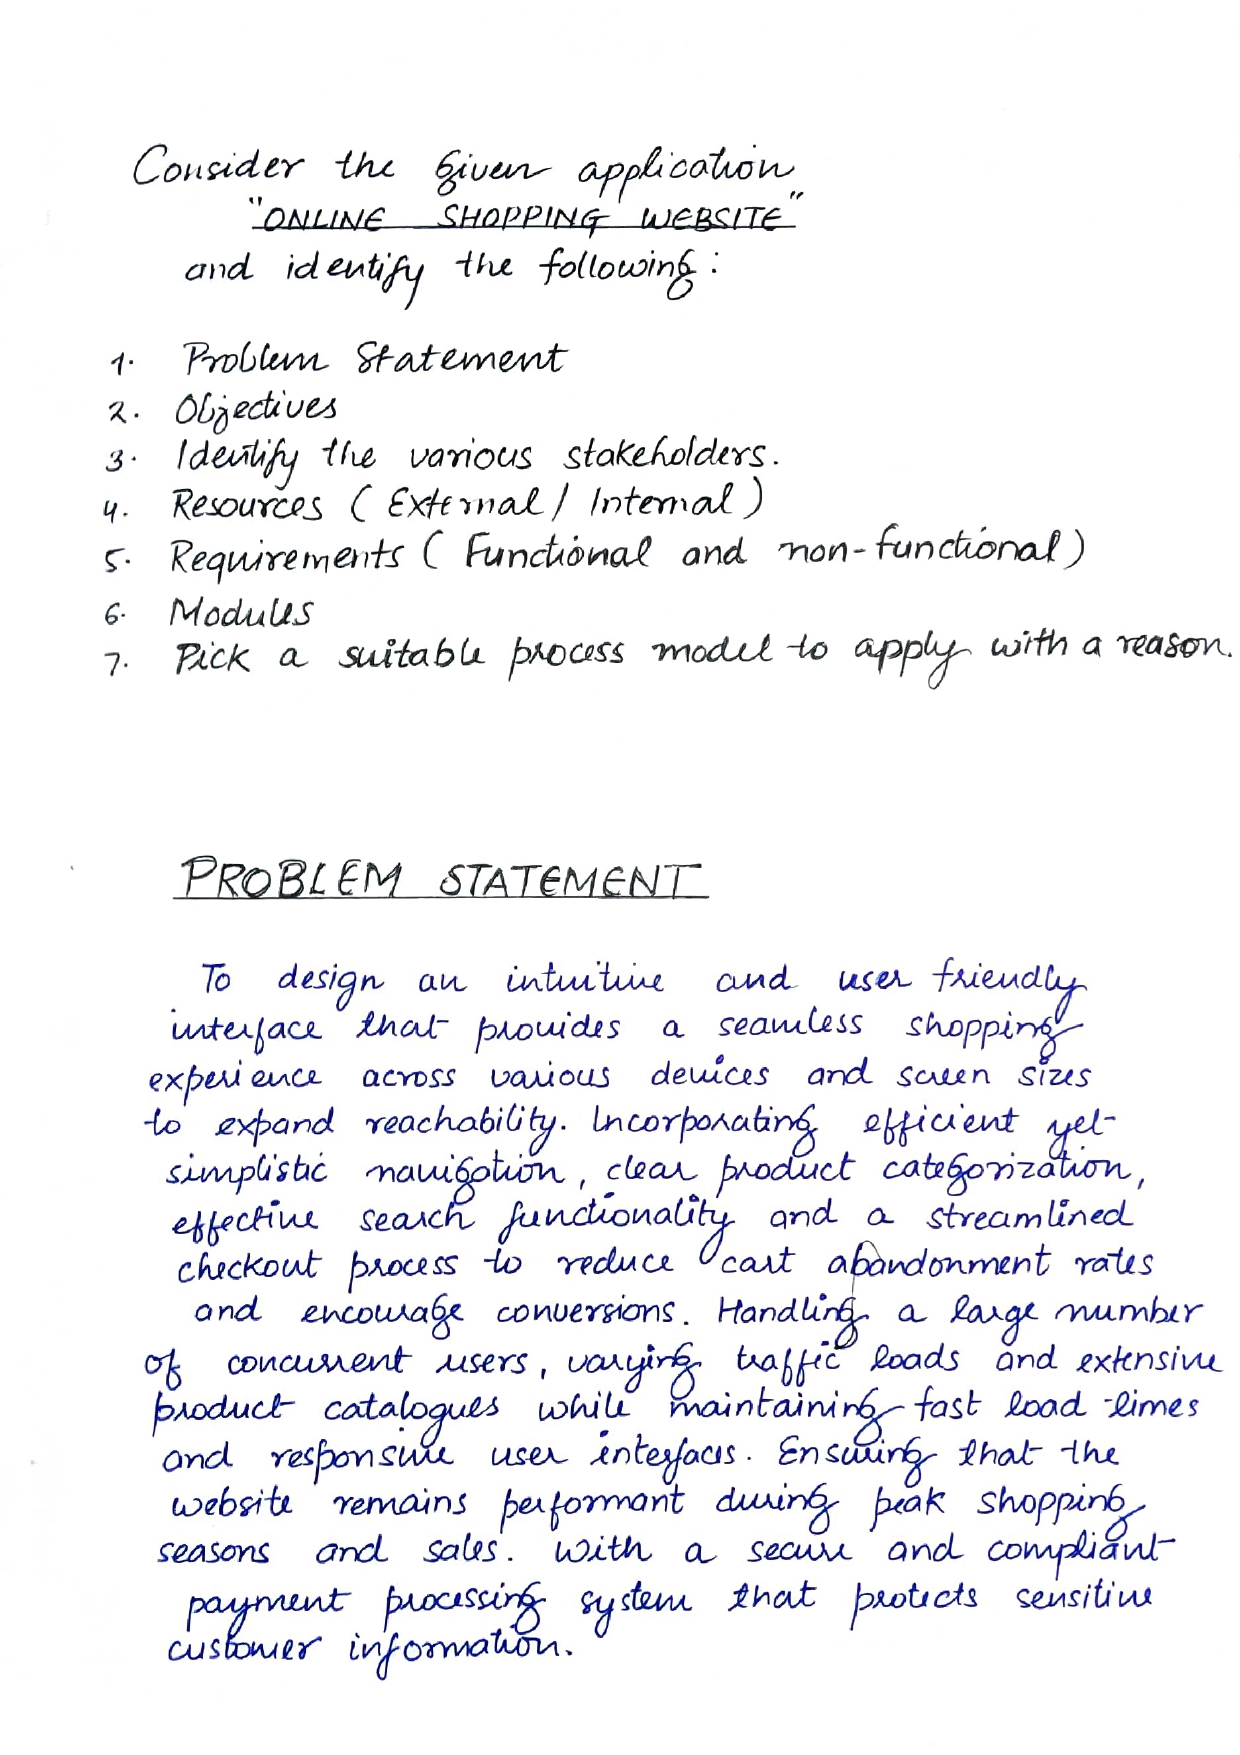 Consider the given application
"ONLINE SHOPPING WEBSITE"
and identify the following:
1. Problem Statement
2. Objectives
3. Identify the various stakeholders.
4. Resources (External / Internal)
5. Requirements (Functional and non-functional)
6. Modules
7. Pick a suitable process model to apply with a reason.
PROBLEM STATEMENT
To design an intuitive and user friendly
interface that provides a seamless shopping
experience across various devices and screen sizes
to expand reachability. Incorporating efficient yet
simplistic navigation, clear product categorization,
effective search functionality and a streamlined
checkout process to reduce cart abandonment rates
and encourage conversions. Handling a large number
of concurrent users, varying traffic loads and extensive
product catalogues while maintaining fast load times
and responsive user interfaces. Ensuring that the
website remains performant during peak shopping
seasons and sales. With a secure and compliant
payment processing system that protects sensitive
customer information.